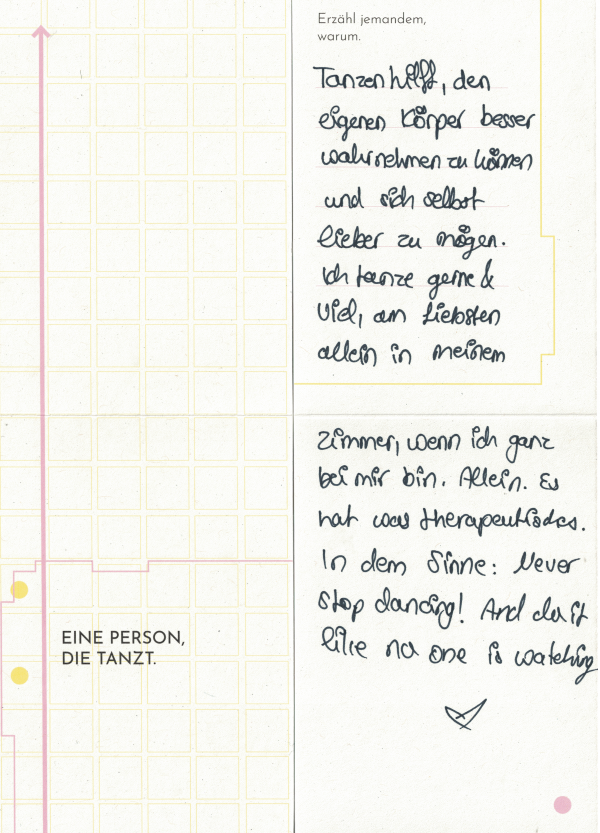 Erzähl jemandem,
warum.
Tanzen hilft, den
eigenen Körper besser
wahrnehmen zu können
und sich selbst
lieber zu mögen.
Ich tanze gerne &
viel, am liebsten
allein in meinem
Zimmer, wenn ich ganz
bei mir bin. Allein. Es
hat was therapeutisches.
In dem Sinne: Never
stop dancing! And do it
like no one is watching
EINE PERSON,
DIE TANZT.